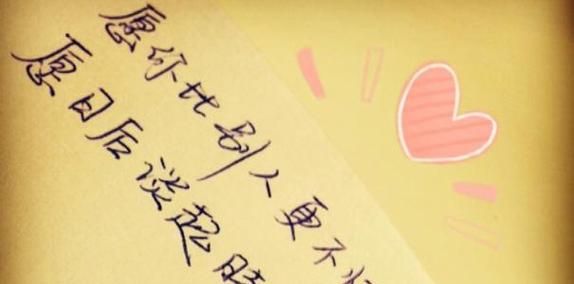 愿你比别人更不
愿日后谈起时